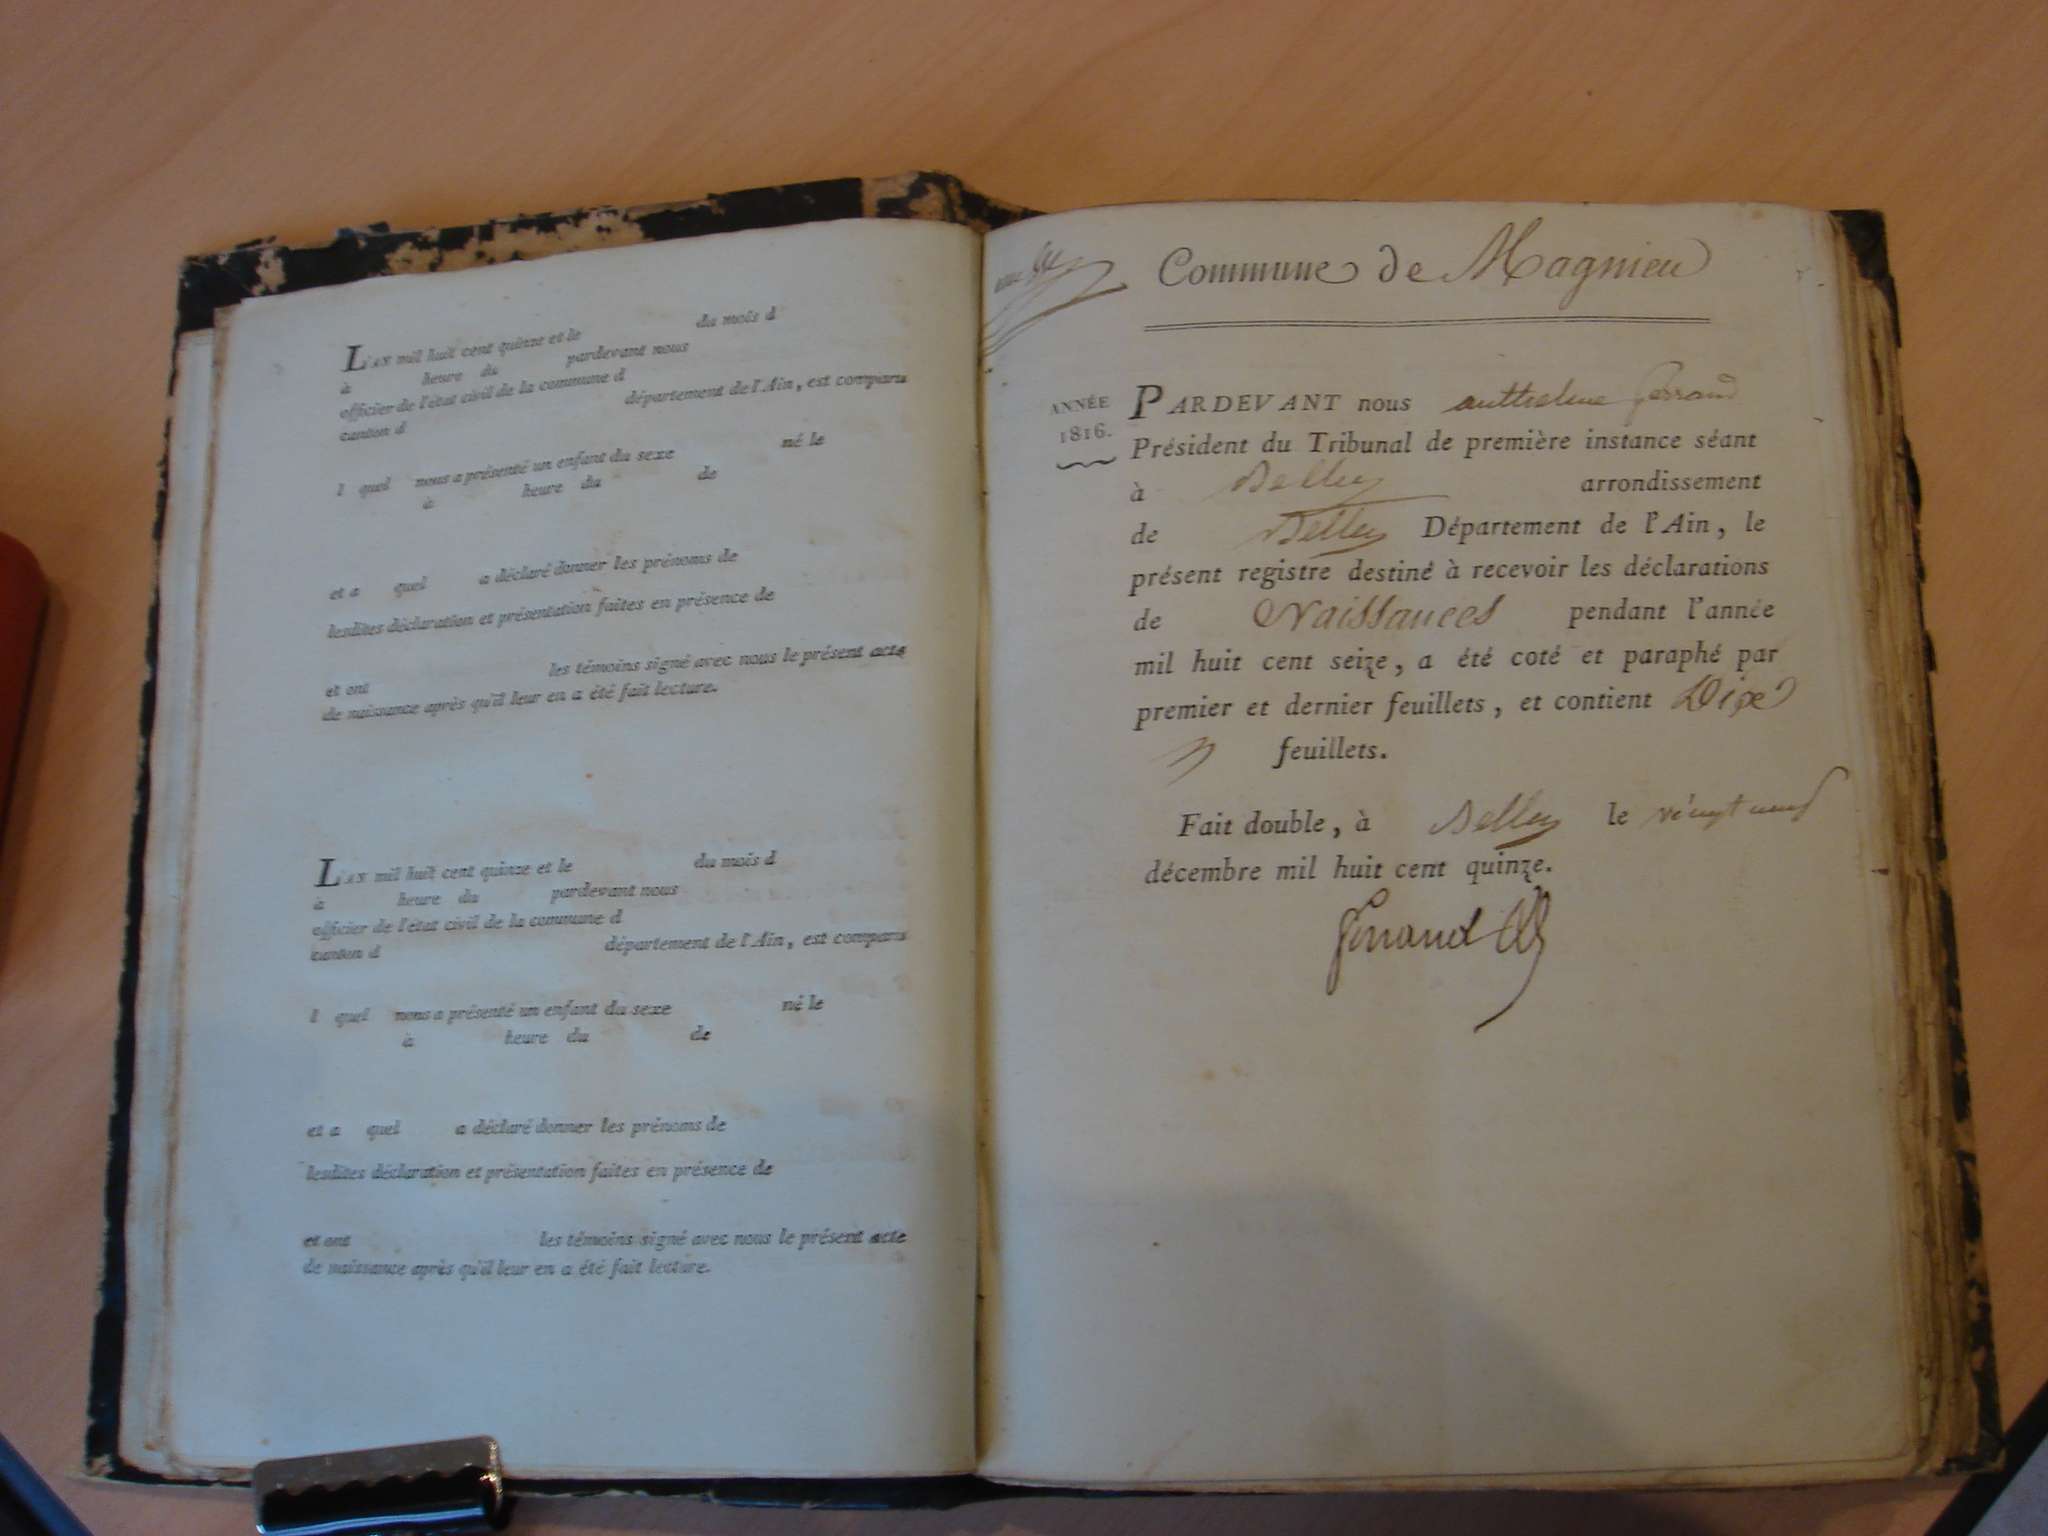 L'AN mil huit cent quinze et le du mois d
à heure du pardevant nous
officier de l'état civil de la commune d
canton d département de l'Ain, est comparu
l quel nous a présenté un enfant du sexe né le
à heure du de
et a quel a déclaré donner les prénoms de
lesdites déclaration et présentation faites en présence de
et ont les témoins signé avec nous le présent acte
de naissance après qu'il leur en a été fait lecture.
L'AN mil huit cent quinze et le du mois d
à heure du pardevant nous
officier de l'état civil de la commune d
canton d département de l'Ain, est comparu
l quel nous a présenté un enfant du sexe né le
à heure du de
et a quel a déclaré donner les prénoms de
lesdites déclaration et présentation faites en présence de
et ont les témoins signé avec nous le présent acte
de naissance après qu'il leur en a été fait lecture.
Commune de Magnieu
ANNÉE
1816.
PARDEVANT nous anthelme ferrand
Président du Tribunal de première instance séant
à Belley arrondissement
de Belley Département de l'Ain, le
présent registre destiné à recevoir les déclarations
de Naissances pendant l'année
mil huit cent seize, a été coté et paraphé par
premier et dernier feuillets, et contient Dix
feuillets.
Fait double, à Belley le vingt neuf
décembre mil huit cent quinze.
ferrand